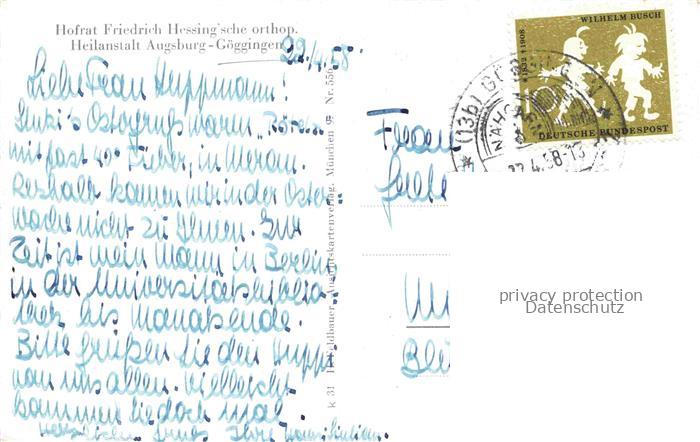 Hofrat Friedrich Hessing'sche orthop.
Heilanstalt Augsburg-Göggingen
22.4.58
Liebe Frau Huppmann!
Ostergruß waren
mit fast 40° Fieber, in Meran.
Deshalb kamen wir in der Oster-
woche nicht zu Ihnen. Zur
Zeit ist mein Mann in Berlin
in der Universitätsbiblio-
thek bis Monatsende.
Bitte grüßen Sie den Hupp-
von uns allen. Vielleicht
kommen Sie doch mal
Ihre
k 31 München Nr. 556
WILHELM BUSCH
1832 1908
10
DEUTSCHE BUNDESPOST
(13b)
22.4.58-13
Frau
privacy protection
Datenschutz